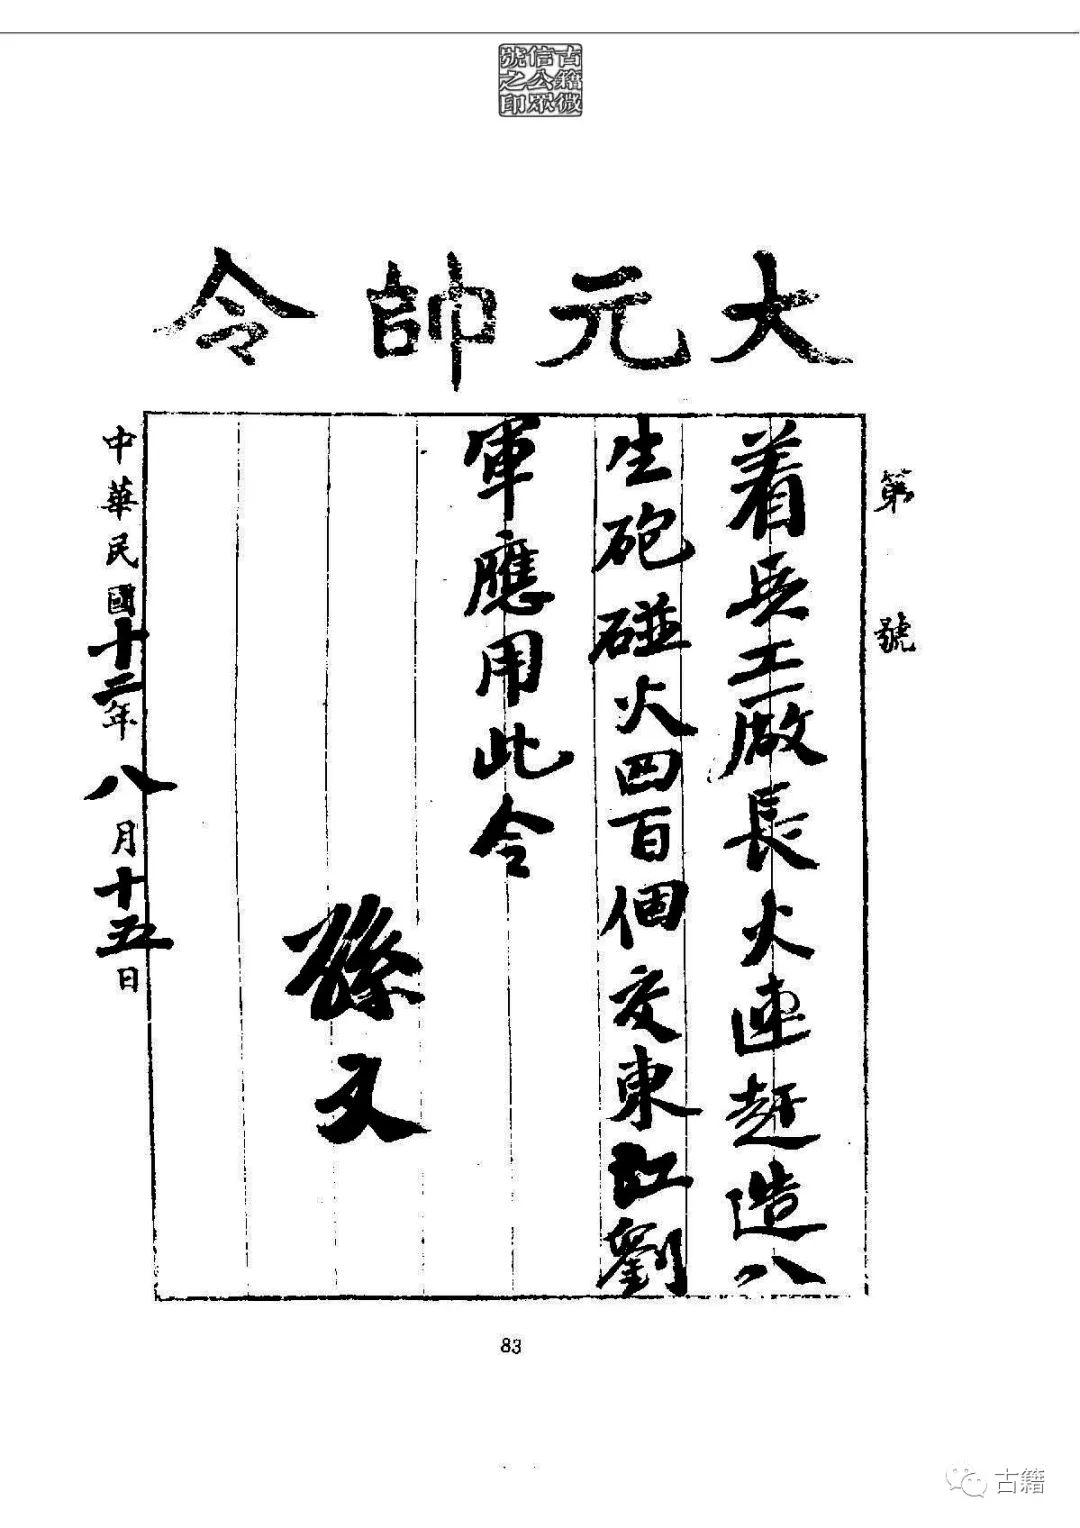 古籍微
信公眾
號之印
大元帥令
第 號
着兵工廠長火速赶造八
生砲碰火四百個交東江劉
軍應用此令
孫文
中華民國十二年八月十五日
83
古籍